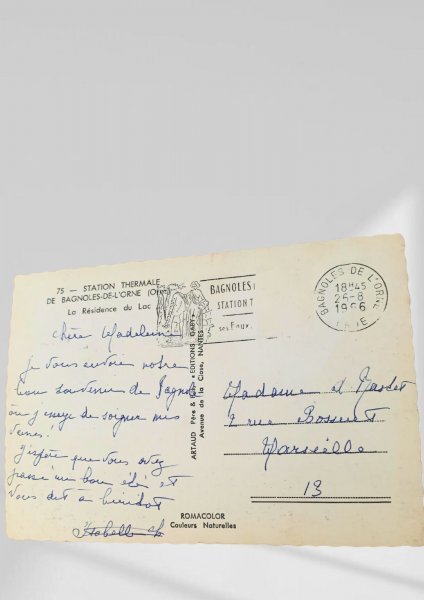 75 — STATION THERMALE
DE BAGNOLES-DE-L'ORNE (Orne)
La Résidence du Lac
BAGNOLES
STATION T
ses Eaux.
BAGNOLES DE L'ORNE
18H45
25-8
1966
ORNE
Chère Madeleine
je vous envoie notre
bon souvenir de Bagnoles
où j'essaye de soigner mes
veines!
J'espère que vous avez
passé un bon été et
vous dit à bientôt
Isabelle
ARTAUD Père & Fils « EDITIONS GABY »
Avenue de la Close, NANTES
Madame et
2 rue Bossuet
Marseille
13
ROMACOLOR
Couleurs Naturelles